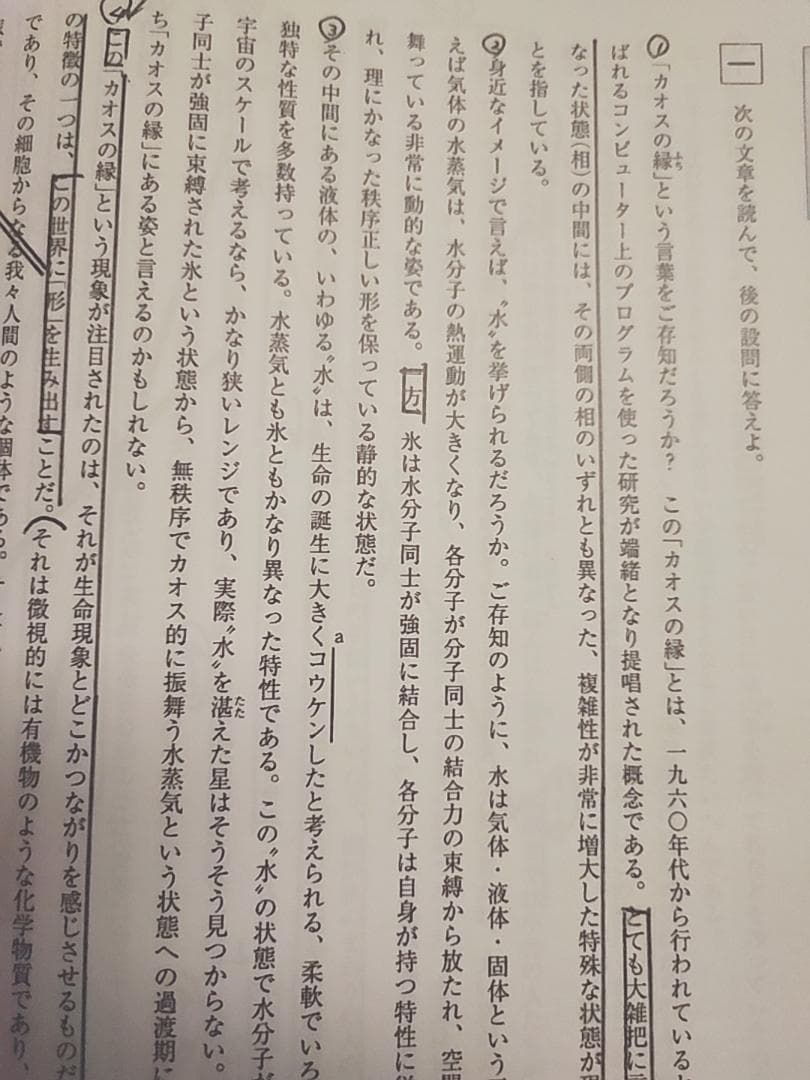 一
次の文章を読んで、後の設問に答えよ。
①「カオスの縁」という言葉をご存知だろうか? この「カオスの縁」とは、一九六〇年代から行われている
ふち
ばれるコンピューター上のプログラムを使った研究が端緒となり提唱された概念である。とても大雑把に
なった状態(相)の中間には、その両側の相のいずれとも異なった、複雑性が非常に増大した特殊な状態が
とを指している。
②身近なイメージで言えば、〝水〟を挙げられるだろうか。ご存知のように、水は気体・液体・固体という
えば気体の水蒸気は、水分子の熱運動が大きくなり、各分子が分子同士の結合力の束縛から放たれ、空
舞っている非常に動的な姿である。一方、氷は水分子同士が強固に結合し、各分子は自身が持つ特性に
れ、理にかなった秩序正しい形を保っている静的な状態だ。
③その中間にある液体の、いわゆる〝水〟は、生命の誕生に大きくコウケンしたと考えられる、柔軟でいろ
a
独特な性質を多数持っている。水蒸気とも氷ともかなり異なった特性である。この〝水〟の状態で水分子が
宇宙のスケールで考えるなら、かなり狭いレンジであり、実際〝水〟を湛えた星はそうそう見つからない。
たた
子同士が強固に束縛された氷という状態から、無秩序でカオス的に振舞う水蒸気という状態への過渡期に
ち「カオスの縁」にある姿と言えるのかもしれない。
④この「カオスの縁」という現象が注目されたのは、それが生命現象とどこかつながりを感じさせるものだ
の特徴の一つは、この世界に「形」を生み出すことだ。それは微視的には有機物のような化学物質であり、
であり、その細胞からなる我々人間のような個体である。